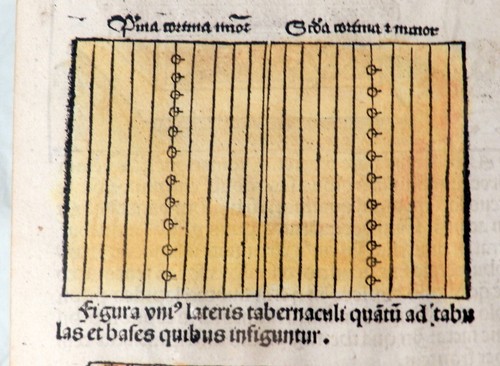 Pͥma cortina mīor Scd̄a cortina ⁊ minor
Figura vniꝰ lateris tabernaculi quātū ad tabu
las et bases quibus insiguntur.